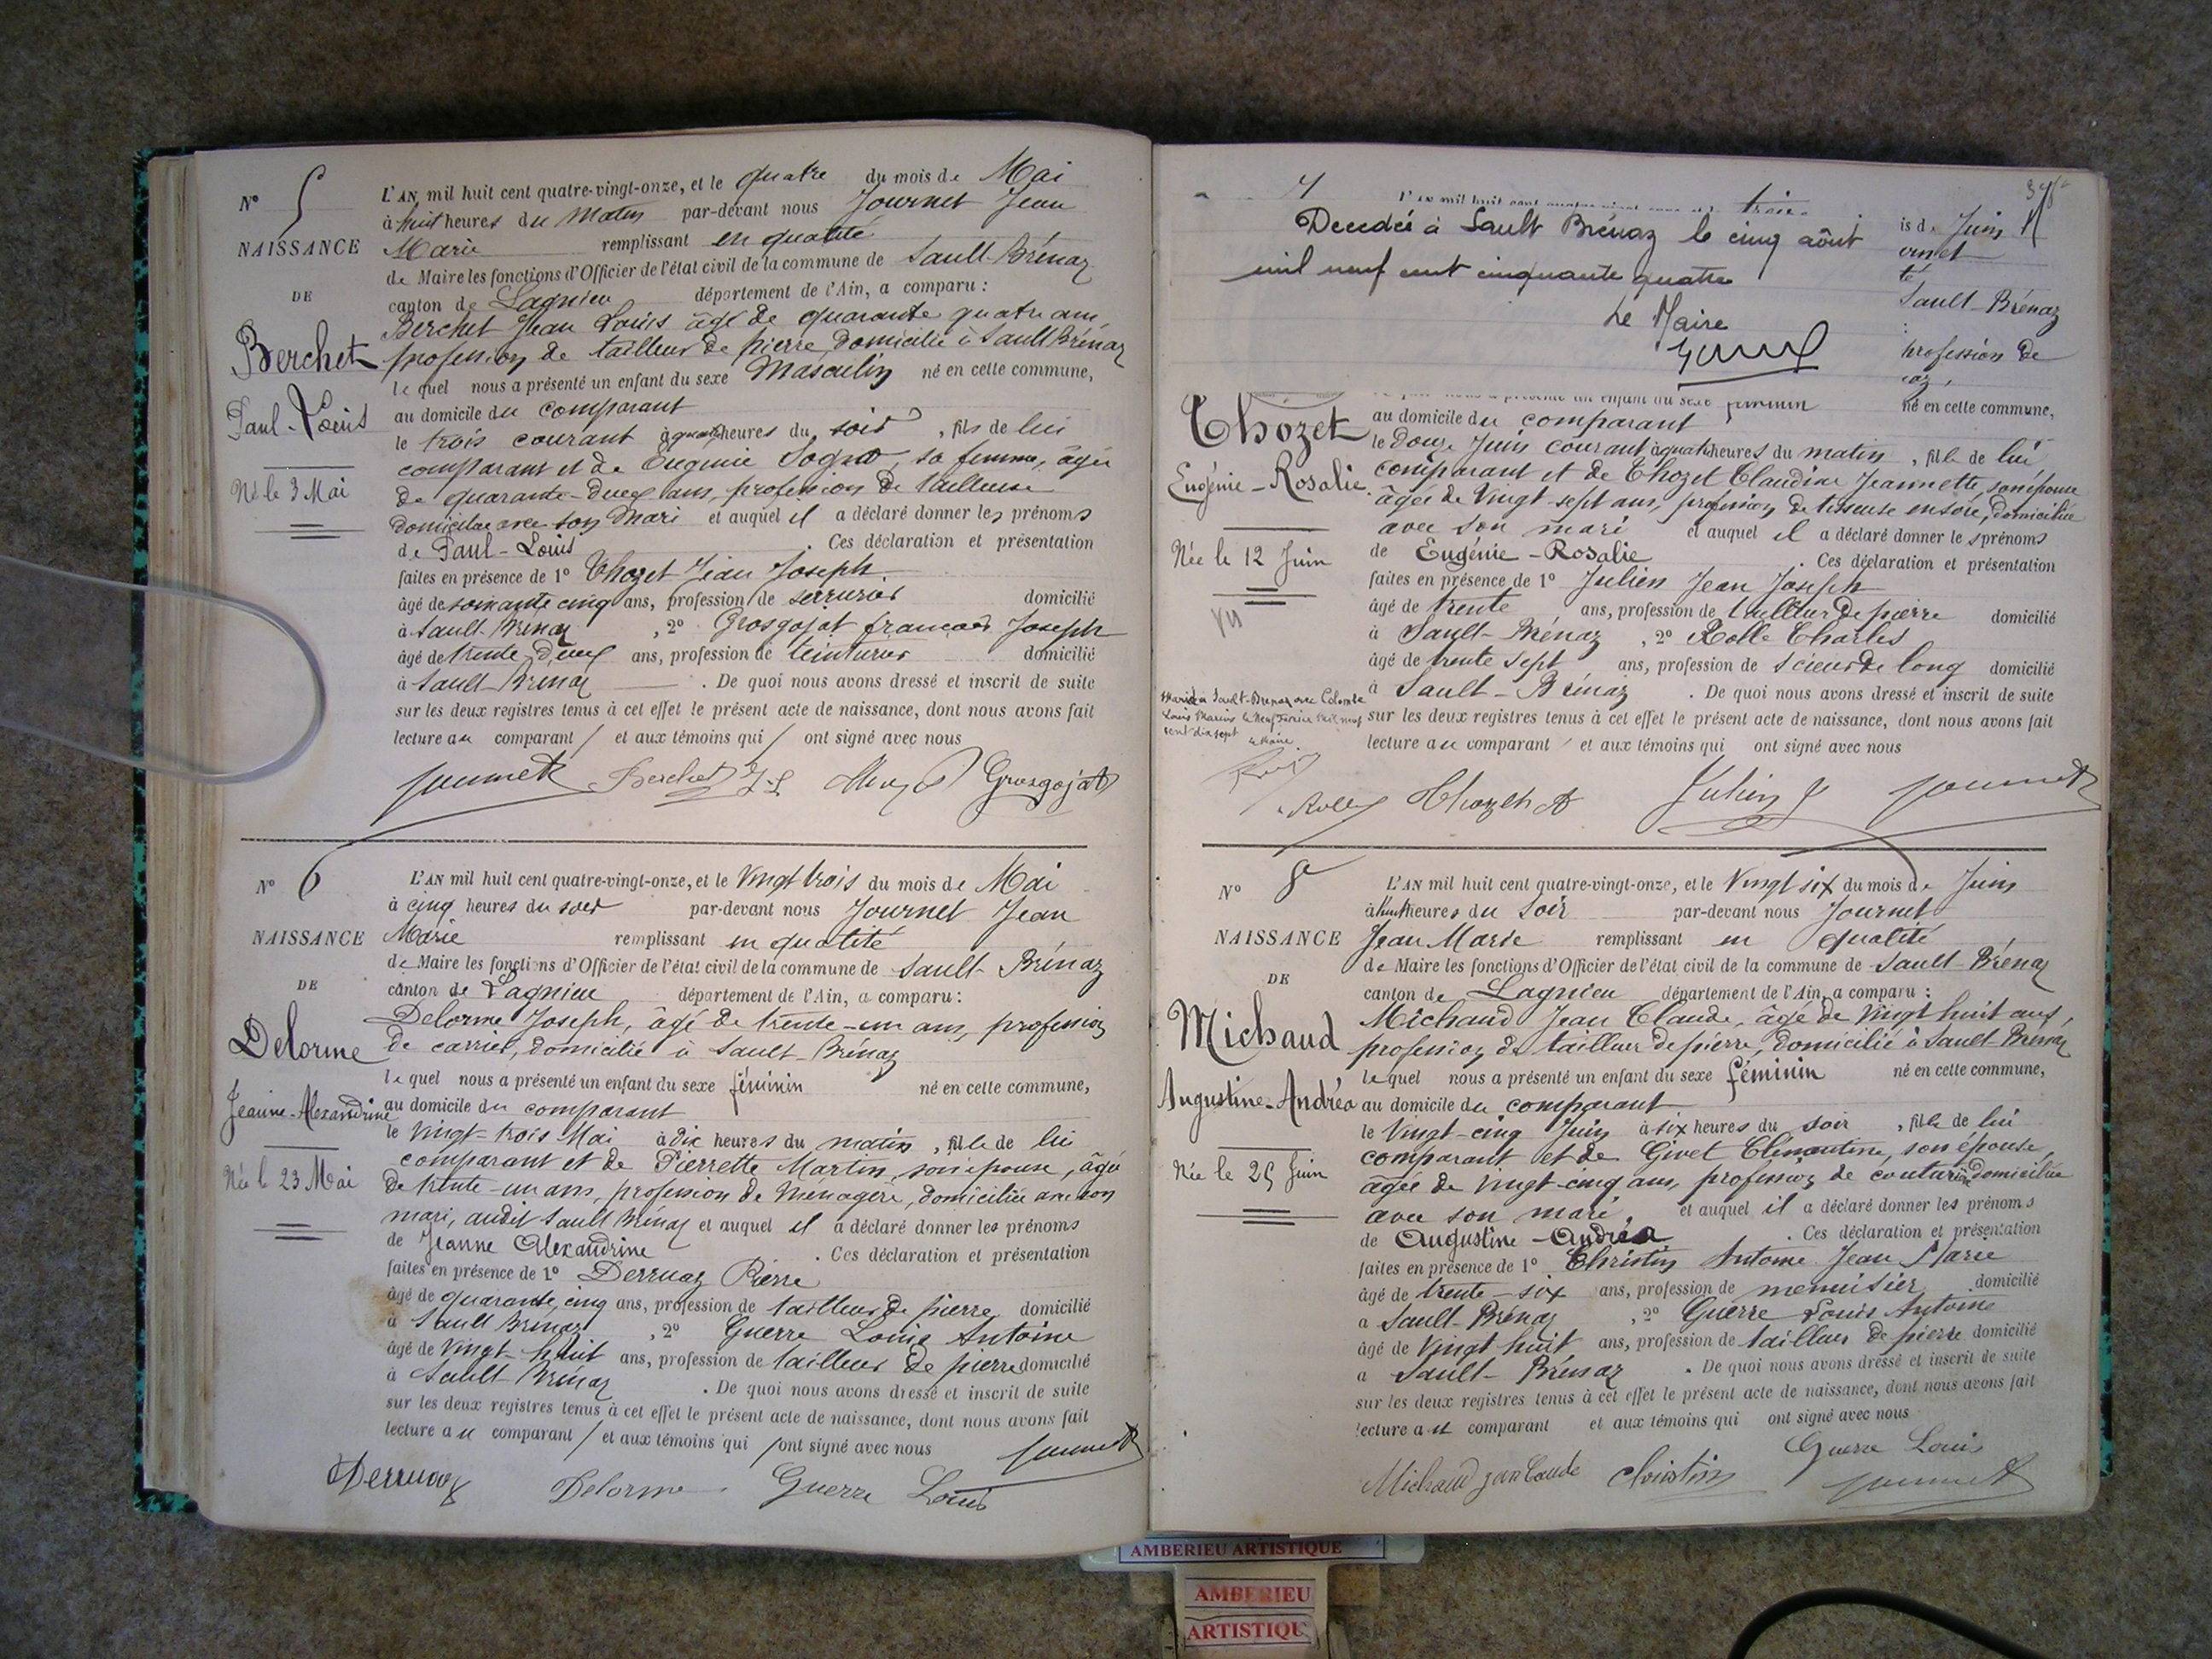 N° 5
NAISSANCE
DE
Berchet
Paul-Louis
Né le 3 Mai
L'AN mil huit cent quatre-vingt-onze, et le quatre du mois de Mai
à huit heures du Matin par-devant nous Journet Jean
Marie remplissant en qualité
de Maire les fonctions d'Officier de l'état civil de la commune de Sault-Brénaz
canton de Lagnieu département de l'Ain, a comparu :
Berchet Jean Louis âgé de quarante quatre ans,
profession de tailleur de pierre, domicilié à Sault Brénaz
lequel nous a présenté un enfant du sexe Masculin né en cette commune,
au domicile du comparant
le trois courant à quatre heures du soir, fils de lui
comparant et de Eugénie, sa femme, âgée
de quarante-deux ans, profession de tailleuse
domiciliée avec son mari et auquel il a déclaré donner les prénoms
de Paul-Louis. Ces déclaration et présentation
faites en présence de 1° Thozet Jean Joseph
âgé de soixante cinq ans, profession de serrurier domicilié
à Sault-Brénaz, 2° Grosgojat francois Joseph
âgé de trente-deux ans, profession de teinturier domicilié
à Sault-Brénaz. De quoi nous avons dressé et inscrit de suite
sur les deux registres tenus à cet effet le présent acte de naissance, dont nous avons fait
lecture au comparant et aux témoins qui ont signé avec nous
Journet Berchet J-L Grosgojat
N° 6
NAISSANCE
DE
Delorme
Jeanne-Alexandrine
Née le 23 Mai
L'AN mil huit cent quatre-vingt-onze, et le Vingt trois du mois de Mai
à cinq heures du soir par-devant nous Journet Jean
Marie remplissant en qualité
de Maire les fonctions d'Officier de l'état civil de la commune de Sault-Brénaz
canton de Lagnieu département de l'Ain, a comparu :
Delorme Joseph, âgé de trente-un ans, profession
de carrier, domicilié à Sault-Brénaz
lequel nous a présenté un enfant du sexe féminin né en cette commune,
au domicile du comparant
le Vingt-trois Mai à dix heures du matin, fille de lui
comparant et de Pierrette Martin, son épouse, âgée
de trente-un ans, profession de Ménagère, domiciliée avec son
mari, audit Sault Brénaz et auquel il a déclaré donner les prénoms
de Jeanne Alexandrine. Ces déclaration et présentation
faites en présence de 1° Derruaz Pierre
âgé de quarante cinq ans, profession de tailleur de pierre domicilié
à Sault Brénaz, 2° Guerre Louis Antoine
âgé de Vingt-huit ans, profession de tailleur de pierre domicilié
à Sault-Brénaz. De quoi nous avons dressé et inscrit de suite
sur les deux registres tenus à cet effet le présent acte de naissance, dont nous avons fait
lecture au comparant et aux témoins qui ont signé avec nous
Journet
Derruaz Delorme Guerre Louis
7
L'AN mil huit cent quatre-vingt-onze
Decedée à Sault Brénaz le cinq août
mil neuf cent cinquante quatre
Le Maire
is de Juin
urnet
té
Sault-Brénaz
profession de
az,
Thozet
Eugénie-Rosalie
Née le 12 Juin
Mariée à Sault-Brénaz avec Colombe
Louis Marius le neuf février mil neuf
cent dix sept
Le Maire
féminin né en cette commune,
au domicile du comparant
le douze Juin courant à quatre heures du matin, fille de lui
comparant et de Thozet Claudine Jeannette, son épouse
âgée de vingt-sept ans, profession de tisseuse en soie, domiciliée
avec son mari et auquel il a déclaré donner les prénoms
de Eugénie-Rosalie. Ces déclaration et présentation
faites en présence de 1° Julien Jean Joseph
âgé de trente ans, profession de tailleur de pierre domicilié
à Sault-Brénaz, 2° Rolle Charles
âgé de trente sept ans, profession de scieur de long domicilié
à Sault-Brénaz. De quoi nous avons dressé et inscrit de suite
sur les deux registres tenus à cet effet le présent acte de naissance, dont nous avons fait
lecture au comparant et aux témoins qui ont signé avec nous
Rolle Julien J Journet
N° 8
NAISSANCE
DE
Michaud
Augustine-Andréa
Née le 25 Juin
L'AN mil huit cent quatre-vingt-onze, et le Vingt six du mois de Juin
à huit heures du Soir par-devant nous Journet
Jean Marie remplissant en qualité
de Maire les fonctions d'Officier de l'état civil de la commune de Sault-Brénaz
canton de Lagnieu département de l'Ain, a comparu :
Michaud Jean Claude, âgé de Vingt huit ans,
profession de tailleur de pierre, domicilié à Sault-Brénaz
lequel nous a présenté un enfant du sexe féminin né en cette commune,
au domicile du comparant
le Vingt-cinq Juin à six heures du soir, fille de lui
comparant et de Givet Clémentine, son épouse,
âgée de vingt-cinq ans, profession de couturière domiciliée
avec son mari, et auquel il a déclaré donner les prénoms
de Augustine-Andréa. Ces déclaration et présentation
faites en présence de 1° Christin Antoine Jean Marie
âgé de trente-six ans, profession de menuisier domicilié
à Sault-Brénaz, 2° Guerre Louis Antoine
âgé de Vingt huit ans, profession de tailleur de pierre domicilié
à Sault-Brénaz. De quoi nous avons dressé et inscrit de suite
sur les deux registres tenus à cet effet le présent acte de naissance, dont nous avons fait
lecture au comparant et aux témoins qui ont signé avec nous
Guerre Louis
Michaud Christin Journet
AMBERIEU ARTISTIQUE
AMBERIEU
ARTISTIQUE